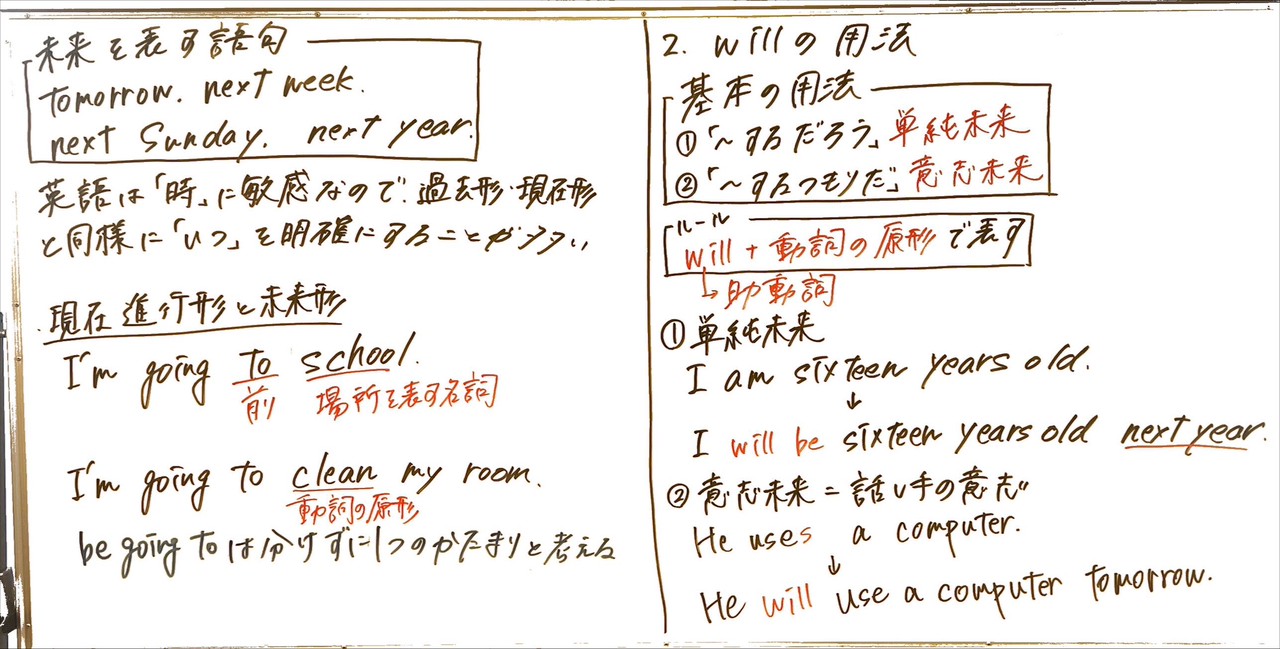 未来を表す語句
tomorrow. next week.
next Sunday. next year.
英語は「時」に敏感なので、過去形・現在形
と同様に「いつ」を明確にすることが多い
現在進行形と未来形
I'm going to school.
前 場所を表す名詞
I'm going to clean my room.
動詞の原形
be going toは分けずに1つのかたまりと考える
2. willの用法
基本の用法
①「~するだろう」単純未来
②「~するつもりだ」意志未来
ルール
will + 動詞の原形で表す
↳助動詞
①単純未来
I am sixteen years old.
↓
I will be sixteen years old next year.
②意志未来=話し手の意志
He uses a computer.
↓
He will use a computer tomorrow.